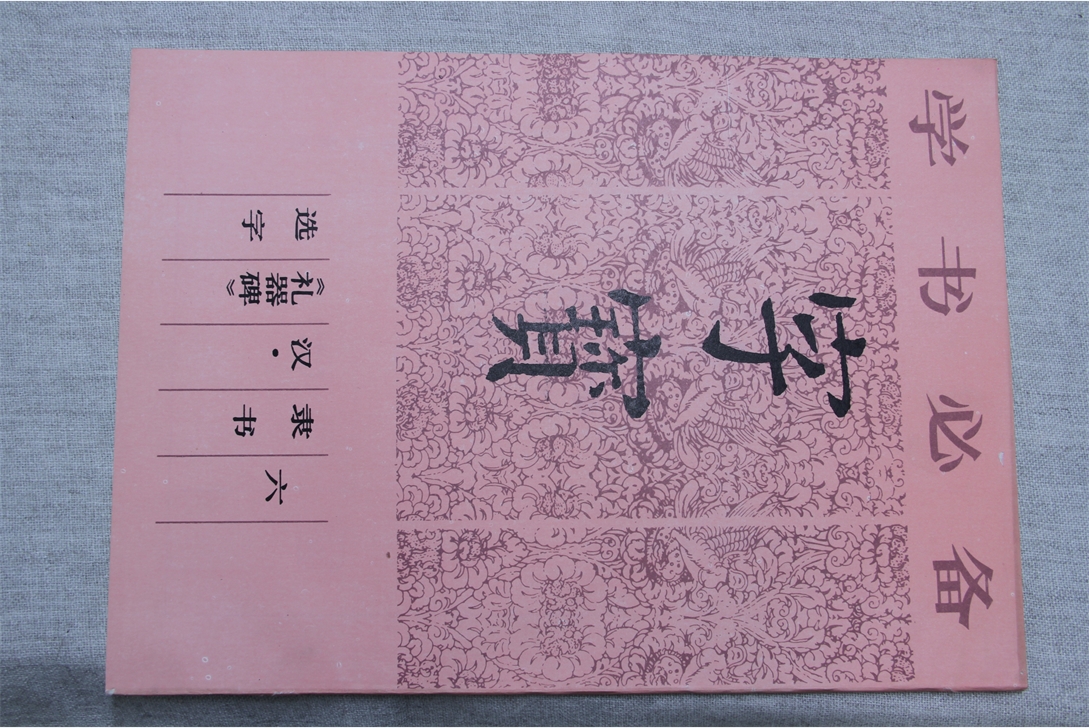 学书必备
字寳
六
隶书
汉·
《礼器碑》
选字